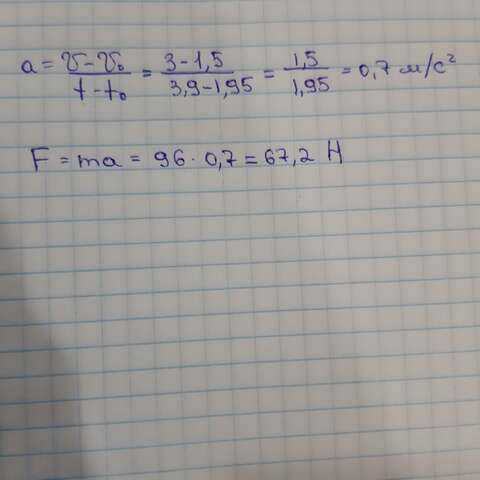 a = v - v₀ / t - t₀ = 3 - 1,5 / 3,9 - 1,95 = 1,5 / 1,95 = 0,7 м/с²
F = ma = 96 · 0,7 = 67,2 Н